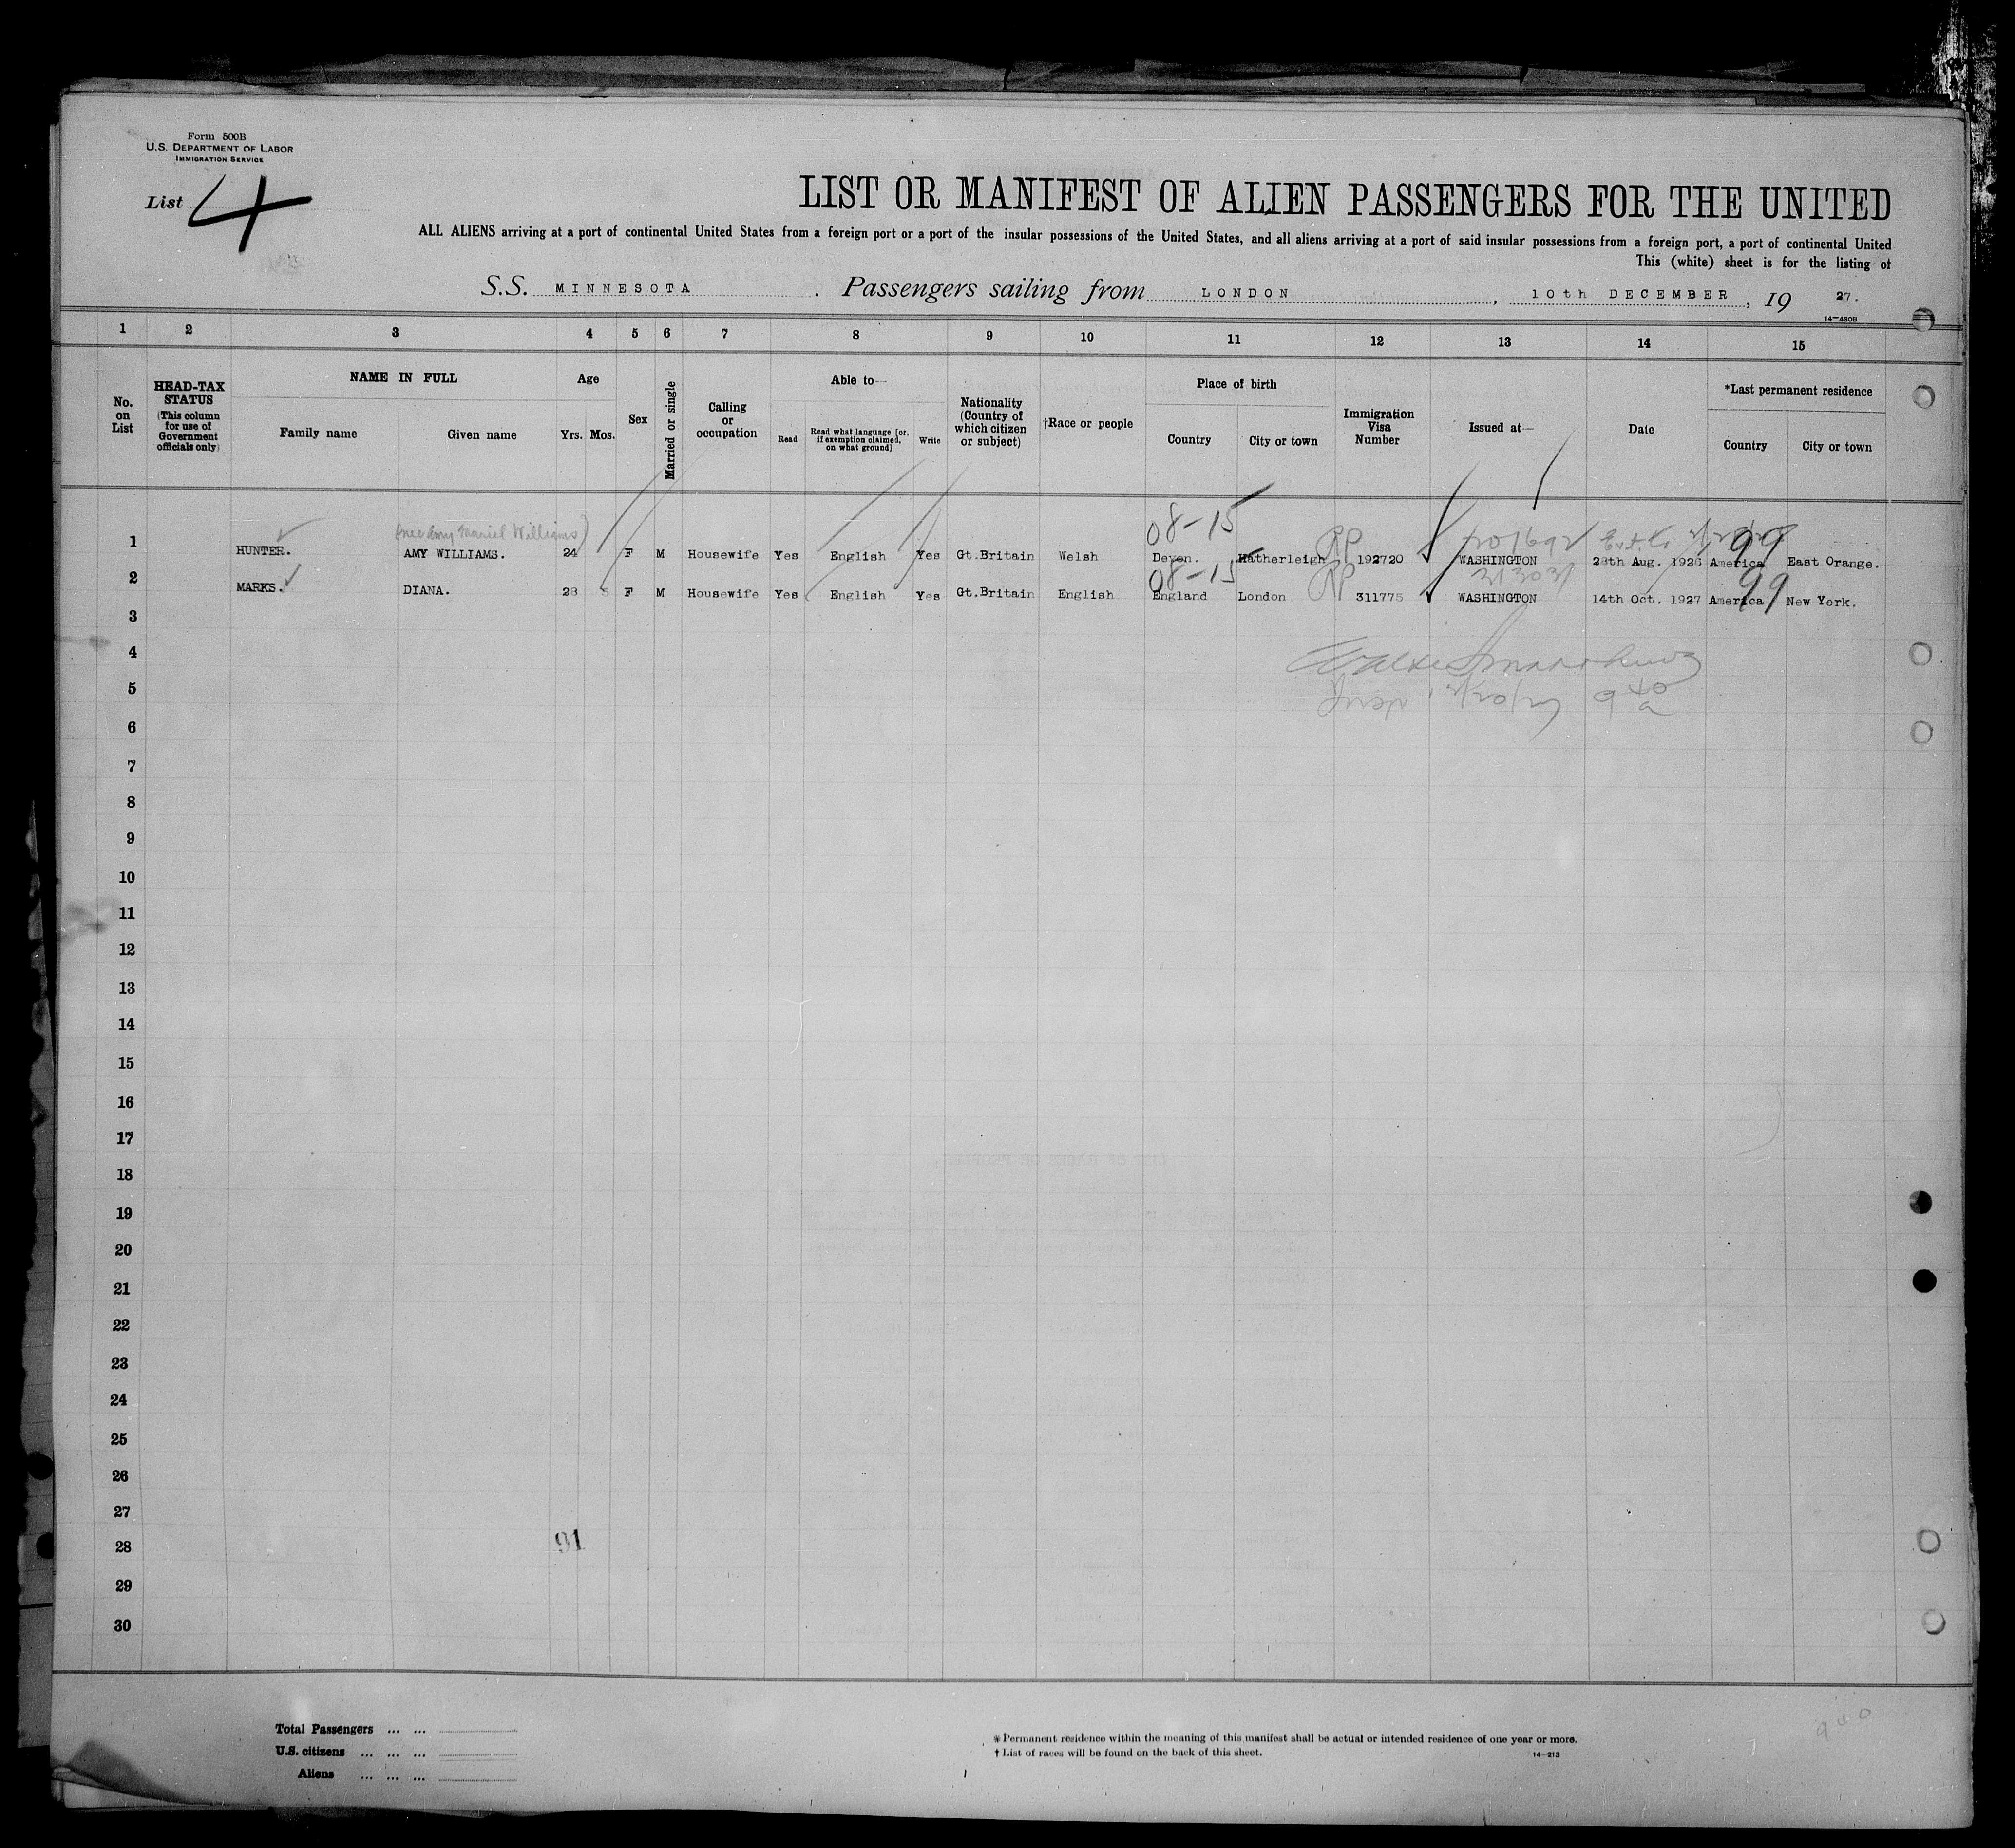 Form 500B
U.S. DEPARTMENT OF LABOR
IMMIGRATION SERVICE
List 4
LIST OR MANIFEST OF ALIEN PASSENGERS FOR THE UNITED
ALL ALIENS arriving at a port of continental United States from a foreign port or a port of the insular possessions of the United States, and all aliens arriving at a port of said insular possessions from a foreign port, a port of continental United
This (white) sheet is for the listing of
S.S. MINNESOTA. Passengers sailing from LONDON, 10th DECEMBER, 19 27.
14-430B
1 2 3 4 5 6 7 8 9 10 11 12 13 14 15
No. on List
HEAD-TAX STATUS (This column for use of Government officials only)
NAME IN FULL
Family name Given name
Age
Yrs. Mos.
Sex
Married or single
Calling or occupation
Able to—
Read Read what language (or, if exemption claimed, on what ground) Write
Nationality (Country of which citizen or subject)
†Race or people
Place of birth
Country City or town
Immigration Visa Number
Issued at—
Date
*Last permanent residence
Country City or town
(nee Amy Muriel Williams) 08-15
1 HUNTER. AMY WILLIAMS. 24 F M Housewife Yes English Yes Gt.Britain Welsh Devon. Hatherleigh RP 192720 WASHINGTON 28th Aug. 1926 America 99 East Orange.
08-15
2 MARKS. DIANA. 28 5 F M Housewife Yes English Yes Gt.Britain English England London RP 311775 WASHINGTON 14th Oct. 1927 America 99 New York.
3
4
5
6
7
8
9
10
11
12
13
14
15
16
17
18
19
20
21
22
23
24
25
26
27
28 91
29
30
Total Passengers ... ...
U.S. citizens ... ... ...
Aliens ... ... ...
* Permanent residence within the meaning of this manifest shall be actual or intended residence of one year or more.
† List of races will be found on the back of this sheet.
14-213
940